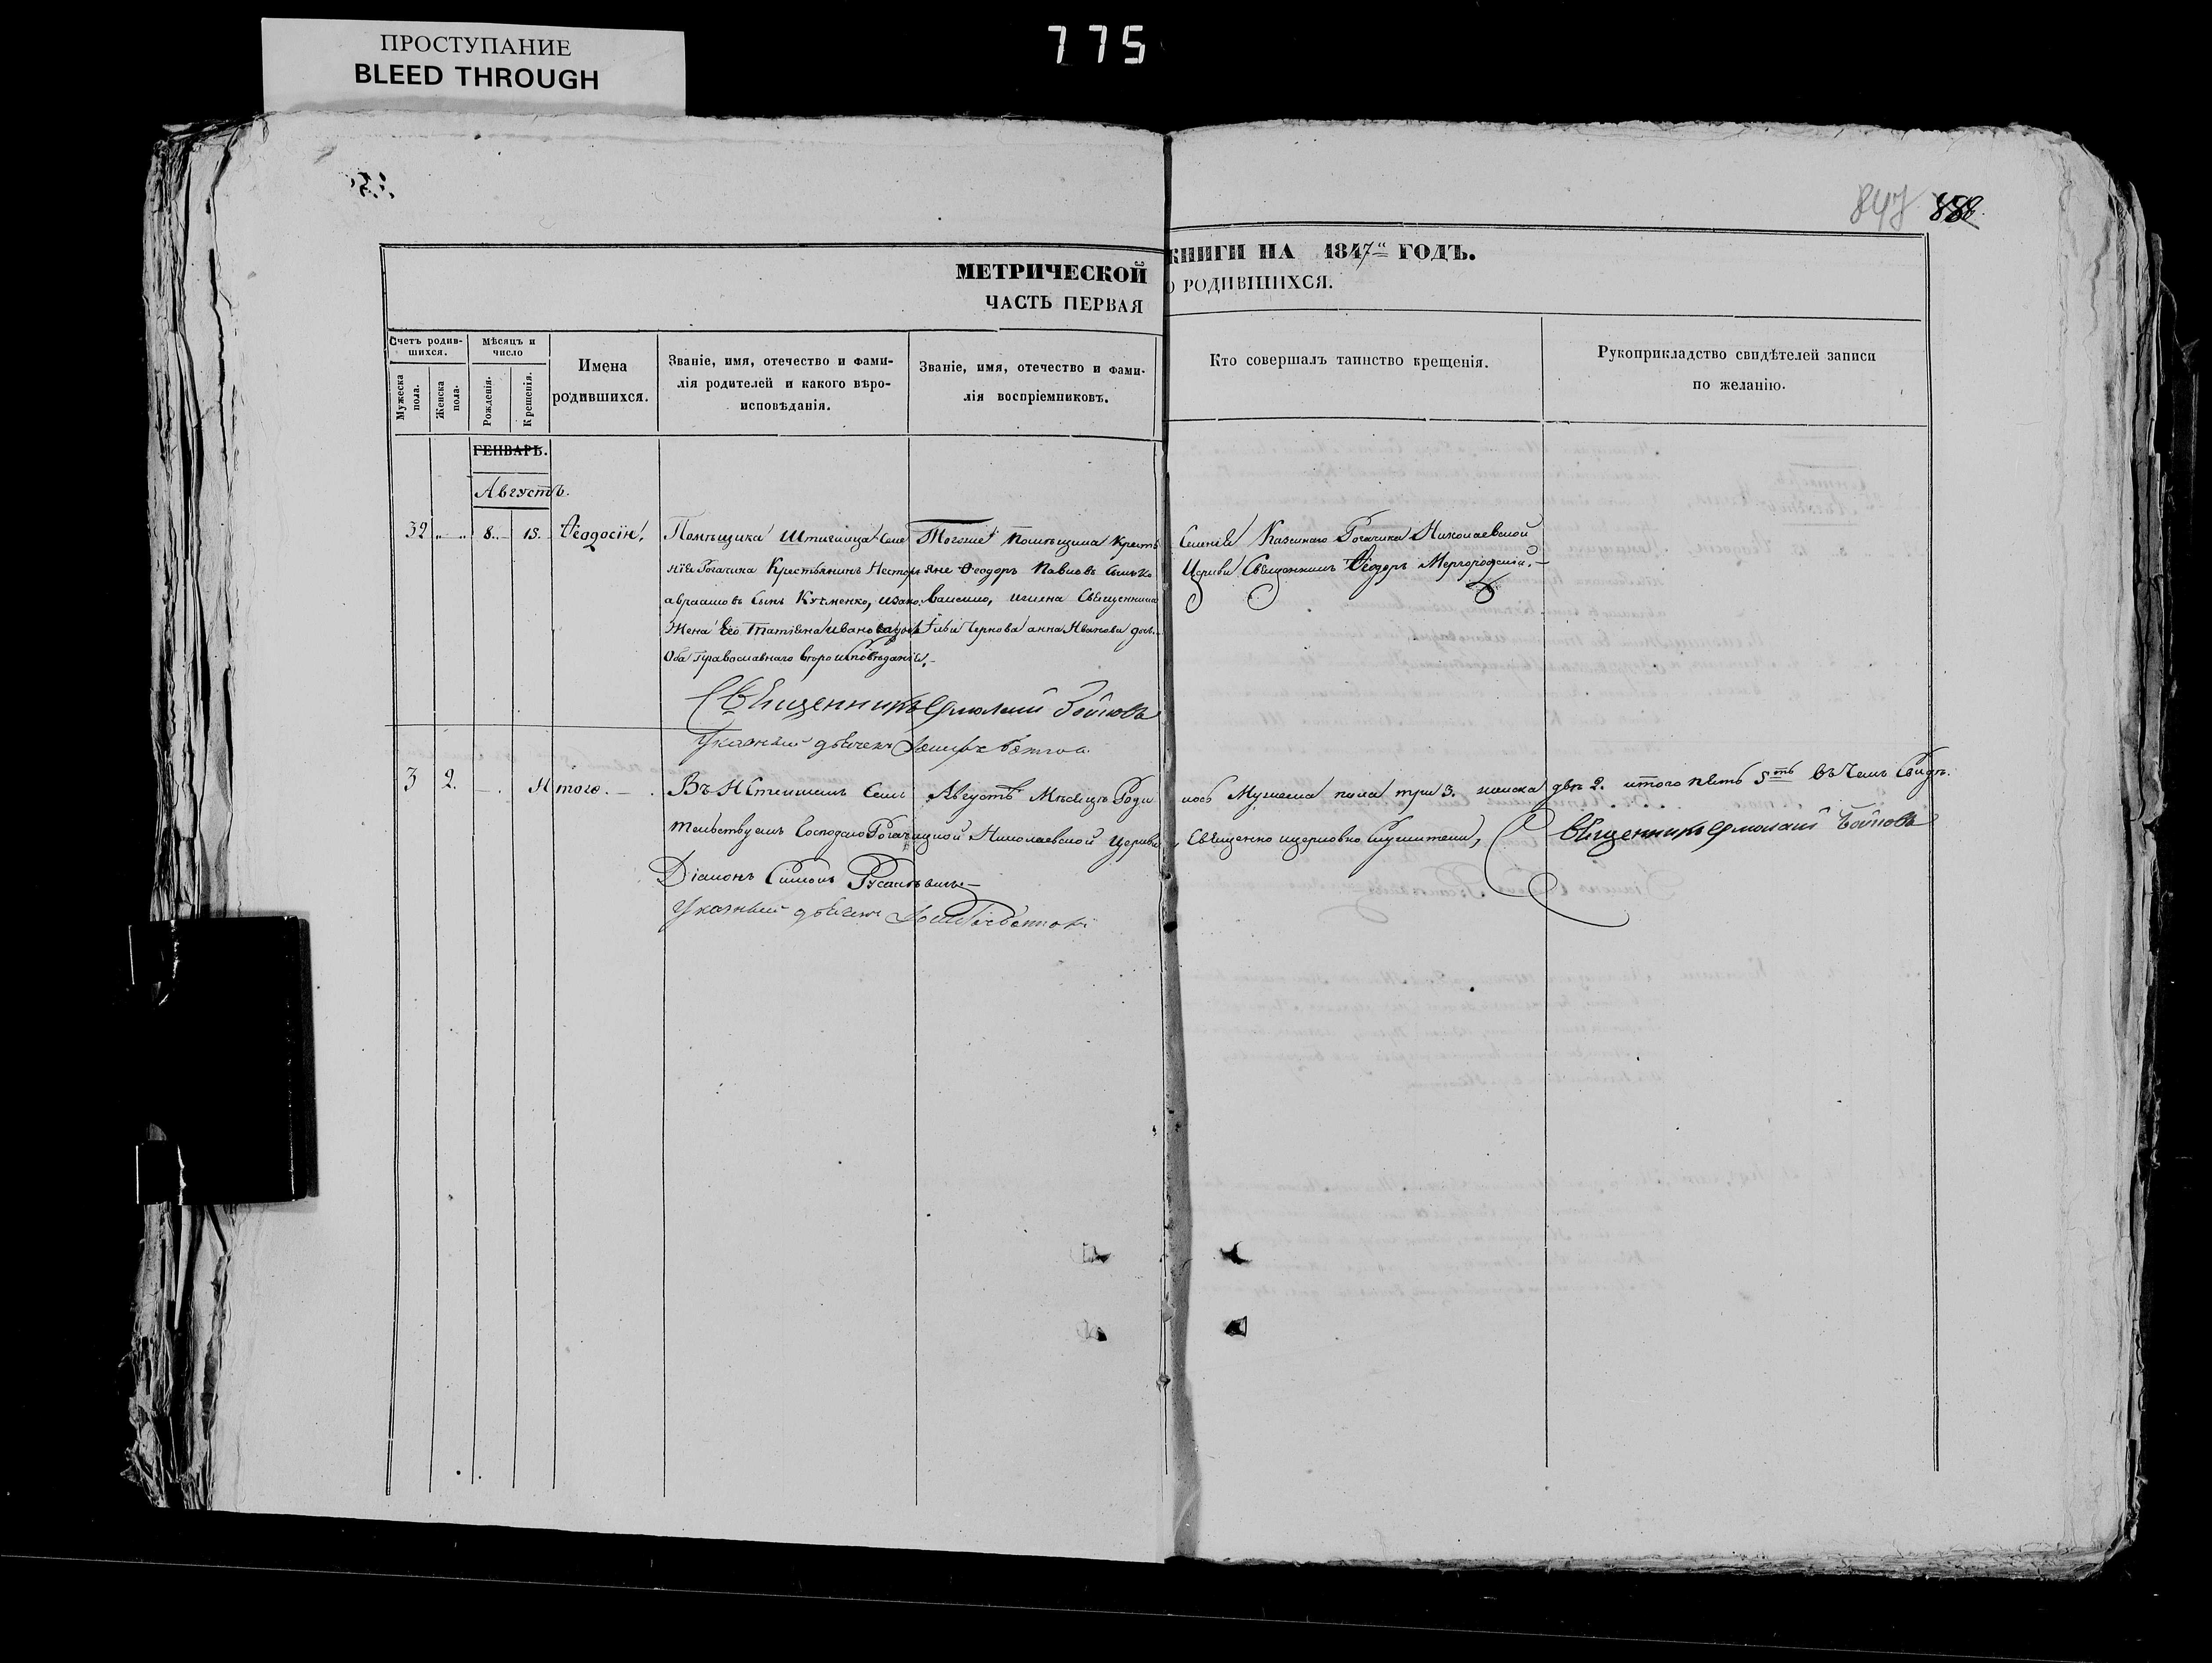 ПРОСТУПАНИЕ
BLEED THROUGH
775
847 888.
МЕТРИЧЕСКОЙ КНИГИ НА 1847й ГОДЪ.
ЧАСТЬ ПЕРВАЯ О РОДИВШИХСЯ.
Счетъ родив-
шихся.
Мужеска пола.
Женска пола.
Мѣсяцъ и
число
Рожденія.
Крещенія.
Имена
родившихся.
Званіе, имя, отечество и фами-
лія родителей и какого вѣро-
исповѣданія.
Званіе, имя, отечество и фами-
лія воспріемниковъ.
Кто совершалъ таинство крещенія.
Рукоприкладство свидѣтелей записи
по желанію.
ГЕНВАРЬ.
Августъ.
32 „ „ 8. 15. Ѳеодосій.
Помѣщика Штиглица Селе
нія Рогачика Крестьянинъ Несторъ
авраамовъ Сынъ Кузменко, изако.
Жена Его Татіяна Иванова дочь
Оба Православнаго вѣроисповѣданія.
Тогоже помѣщика Кресть
яне Ѳеодоръ Павловъ Сынъ
Священника
Чернова анна Иванова доч.
Селенія Казеннаго Рогачика Николаевской
Церкви Священникъ Ѳеодоръ Мергородскій.
Священникъ Ермолай Войновъ
Указный дьячекъ
3 2. — Итого. —
Въ Истекшемъ Семъ Августѣ Мѣсяцѣ Роди лось Мужеска пола три 3. женска двѣ 2. итого пять 5ть въ чемъ Свидѣ.
тельствуемъ Господско Рогачицкой Николаевской Церкви Священно ицерковно Служители, Священникъ Ермолай Войновъ
Діаконъ Симонъ
Указный дьячекъ